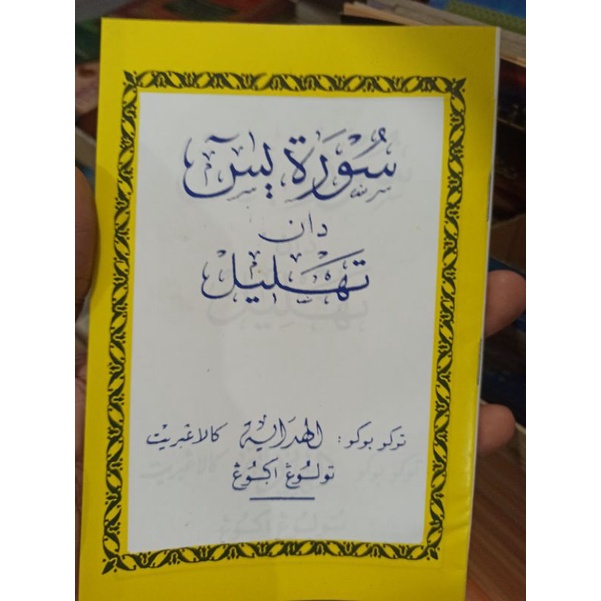 سُوْرَة يٓسٓ
دان
تَهْلِيْل
توكو بوكو: الهداية كالاڠبريت
تولوڠ اكوڠ